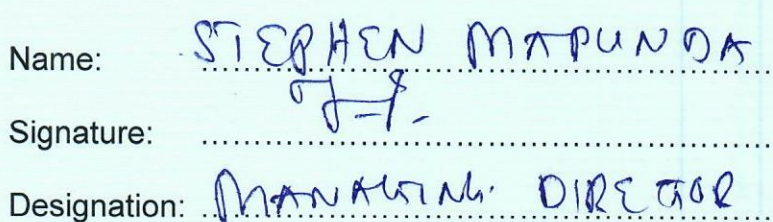 Name: STEPHEN MAPUNDA
Signature:
Designation: MANAGING DIRECTOR